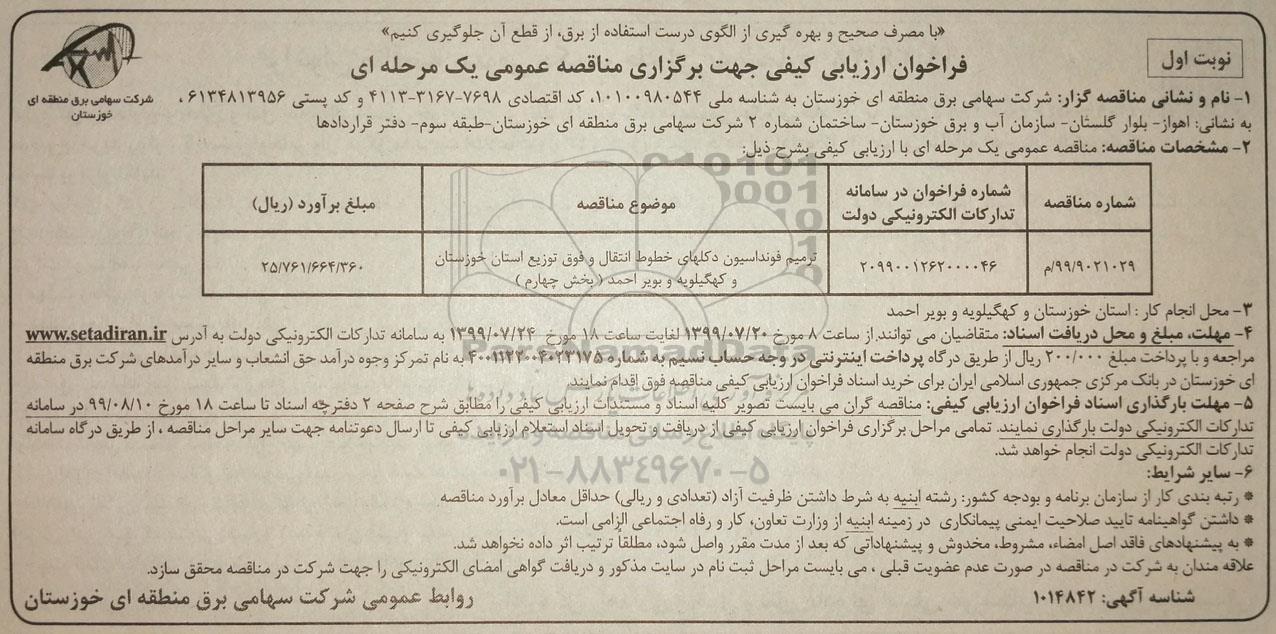 «با مصرف صحیح و بهره گیری از الگوی درست استفاده از برق، از قطع آن جلوگیری کنیم»
نوبت اول
فراخوان ارزیابی کیفی جهت برگزاری مناقصه عمومی یک مرحله ای
شرکت سهامی برق منطقه ای
خوزستان
۱- نام و نشانی مناقصه گزار: شرکت سهامی برق منطقه ای خوزستان به شناسه ملی ۱۰۱۰۰۹۸۰۵۴۴، کد اقتصادی ۷۶۹۸-۳۱۶۷-۴۱۱۳ و کد پستی ۶۱۳۴۸۱۳۹۵۶ ،
به نشانی: اهواز- بلوار گلستان- سازمان آب و برق خوزستان- ساختمان شماره ۲ شرکت سهامی برق منطقه ای خوزستان-طبقه سوم- دفتر قراردادها
۲- مشخصات مناقصه: مناقصه عمومی یک مرحله ای با ارزیابی کیفی بشرح ذیل:
شماره مناقصه
شماره فراخوان در سامانه
تدارکات الکترونیکی دولت
موضوع مناقصه
مبلغ برآورد (ریال)
۹۹/۹۰۲۱۰۲۹/م
۲۰۹۹۰۰۱۲۶۲۰۰۰۰۴۶
ترمیم فونداسیون دکلهای خطوط انتقال و فوق توزیع استان خوزستان
و کهگیلویه و بویر احمد (بخش چهارم )
۲۵/۷۶۱/۶۶۴/۳۶۰
۳- محل انجام کار : استان خوزستان و کهگیلویه و بویر احمد
۴- مهلت، مبلغ و محل دریافت اسناد: متقاضیان می توانند از ساعت ۸ مورخ ۱۳۹۹/۰۷/۲۰ لغایت ساعت ۱۸ مورخ ۱۳۹۹/۰۷/۲۴ به سامانه تدارکات الکترونیکی دولت به آدرس www.setadiran.ir
مراجعه و با پرداخت مبلغ ۲۰۰/۰۰۰ ریال از طریق درگاه پرداخت اینترنتی در وجه حساب نسیم به شماره ۴۰۰۱۱۲۲۰۰۴۰۲۳۱۷۵ به نام تمرکز وجوه درآمد حق انشعاب و سایر درآمدهای شرکت برق منطقه
ای خوزستان در بانک مرکزی جمهوری اسلامی ایران برای خرید اسناد فراخوان ارزیابی کیفی مناقصه فوق اقدام نمایند.
۵- مهلت بارگذاری اسناد فراخوان ارزیابی کیفی: مناقصه گران می بایست تصویر کلیه اسناد و مستندات ارزیابی کیفی را مطابق شرح صفحه ۲ دفترچه اسناد تا ساعت ۱۸ مورخ ۹۹/۰۸/۱۰ در سامانه
تدارکات الکترونیکی دولت بارگذاری نمایند. تمامی مراحل برگزاری فراخوان ارزیابی کیفی از دریافت و تحویل اسناد استعلام ارزیابی کیفی تا ارسال دعوتنامه جهت سایر مراحل مناقصه ، از طریق درگاه سامانه
تدارکات الکترونیکی دولت انجام خواهد شد.
۶- سایر شرایط:
* رتبه بندی کار از سازمان برنامه و بودجه کشور: رشته ابنیه به شرط داشتن ظرفیت آزاد (تعدادی و ریالی) حداقل معادل برآورد مناقصه
* داشتن گواهینامه تایید صلاحیت ایمنی پیمانکاری در زمینه ابنیه از وزارت تعاون، کار و رفاه اجتماعی الزامی است.
* به پیشنهادهای فاقد اصل امضاء، مشروط، مخدوش و پیشنهاداتی که بعد از مدت مقرر واصل شود، مطلقاً ترتیب اثر داده نخواهد شد.
علاقه مندان به شرکت در مناقصه در صورت عدم عضویت قبلی ، می بایست مراحل ثبت نام در سایت مذکور و دریافت گواهی امضای الکترونیکی را جهت شرکت در مناقصه محقق سازد.
شناسه آگهی: ۱۰۱۴۸۴۲
روابط عمومی شرکت سهامی برق منطقه ای خوزستان
۰۲۱-۸۸۳۴۹۶۷۰-۵